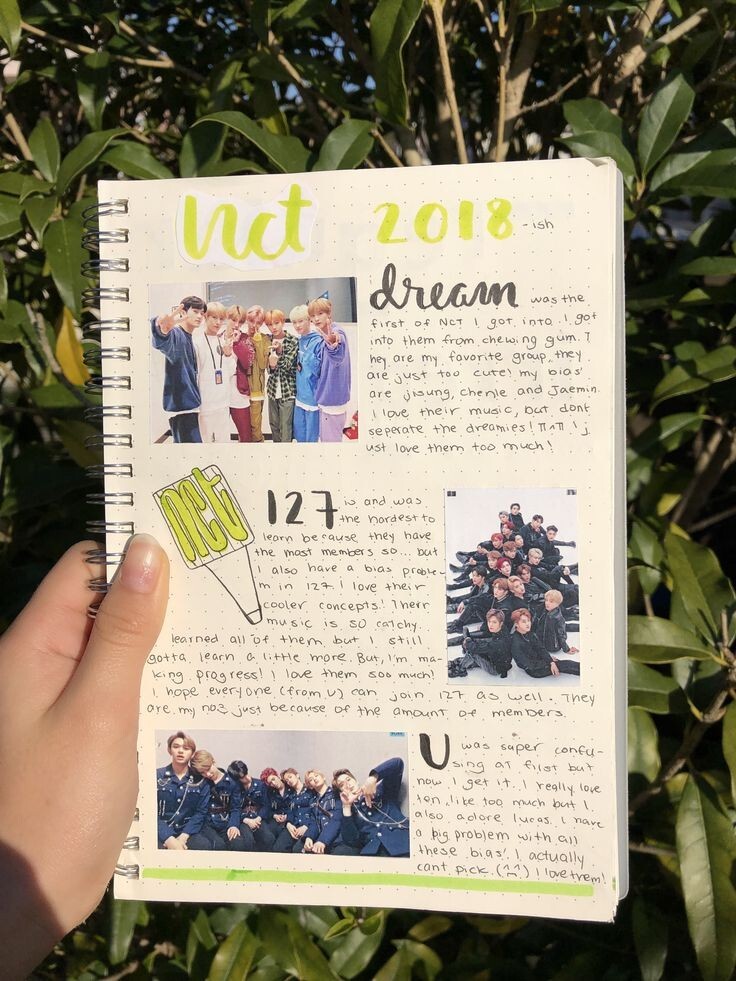 nct 2018 -ish
dream was the
first of NCT I got into. I got
into them from chewing gum. T
hey are my favorite group, they
are just too cute! my bias'
are jisung, chenle and Jaemin.
I love their music, but dont
seperate the dreamies! ㅠㅅㅠ I j
ust love them too much!
nct
127 is and was
the hardest to
learn because they have
the most members so... but
I also have a bias proble-
m in 127. I love their
cooler concepts! Therr
music is so catchy.
I learned all of them but I still
gotta learn a little more. But, I'm ma-
king progress! I love them soo much!
I hope everyone (from U) can join 127 as well. They
are my no3 just because of the amount of members.
U was super confu-
sing at first but
now I get it. I really love
ten, like too much but I
also adore lucas. I have
a big problem with all
these bias'. I actually
cant pick. (^^) I love them!